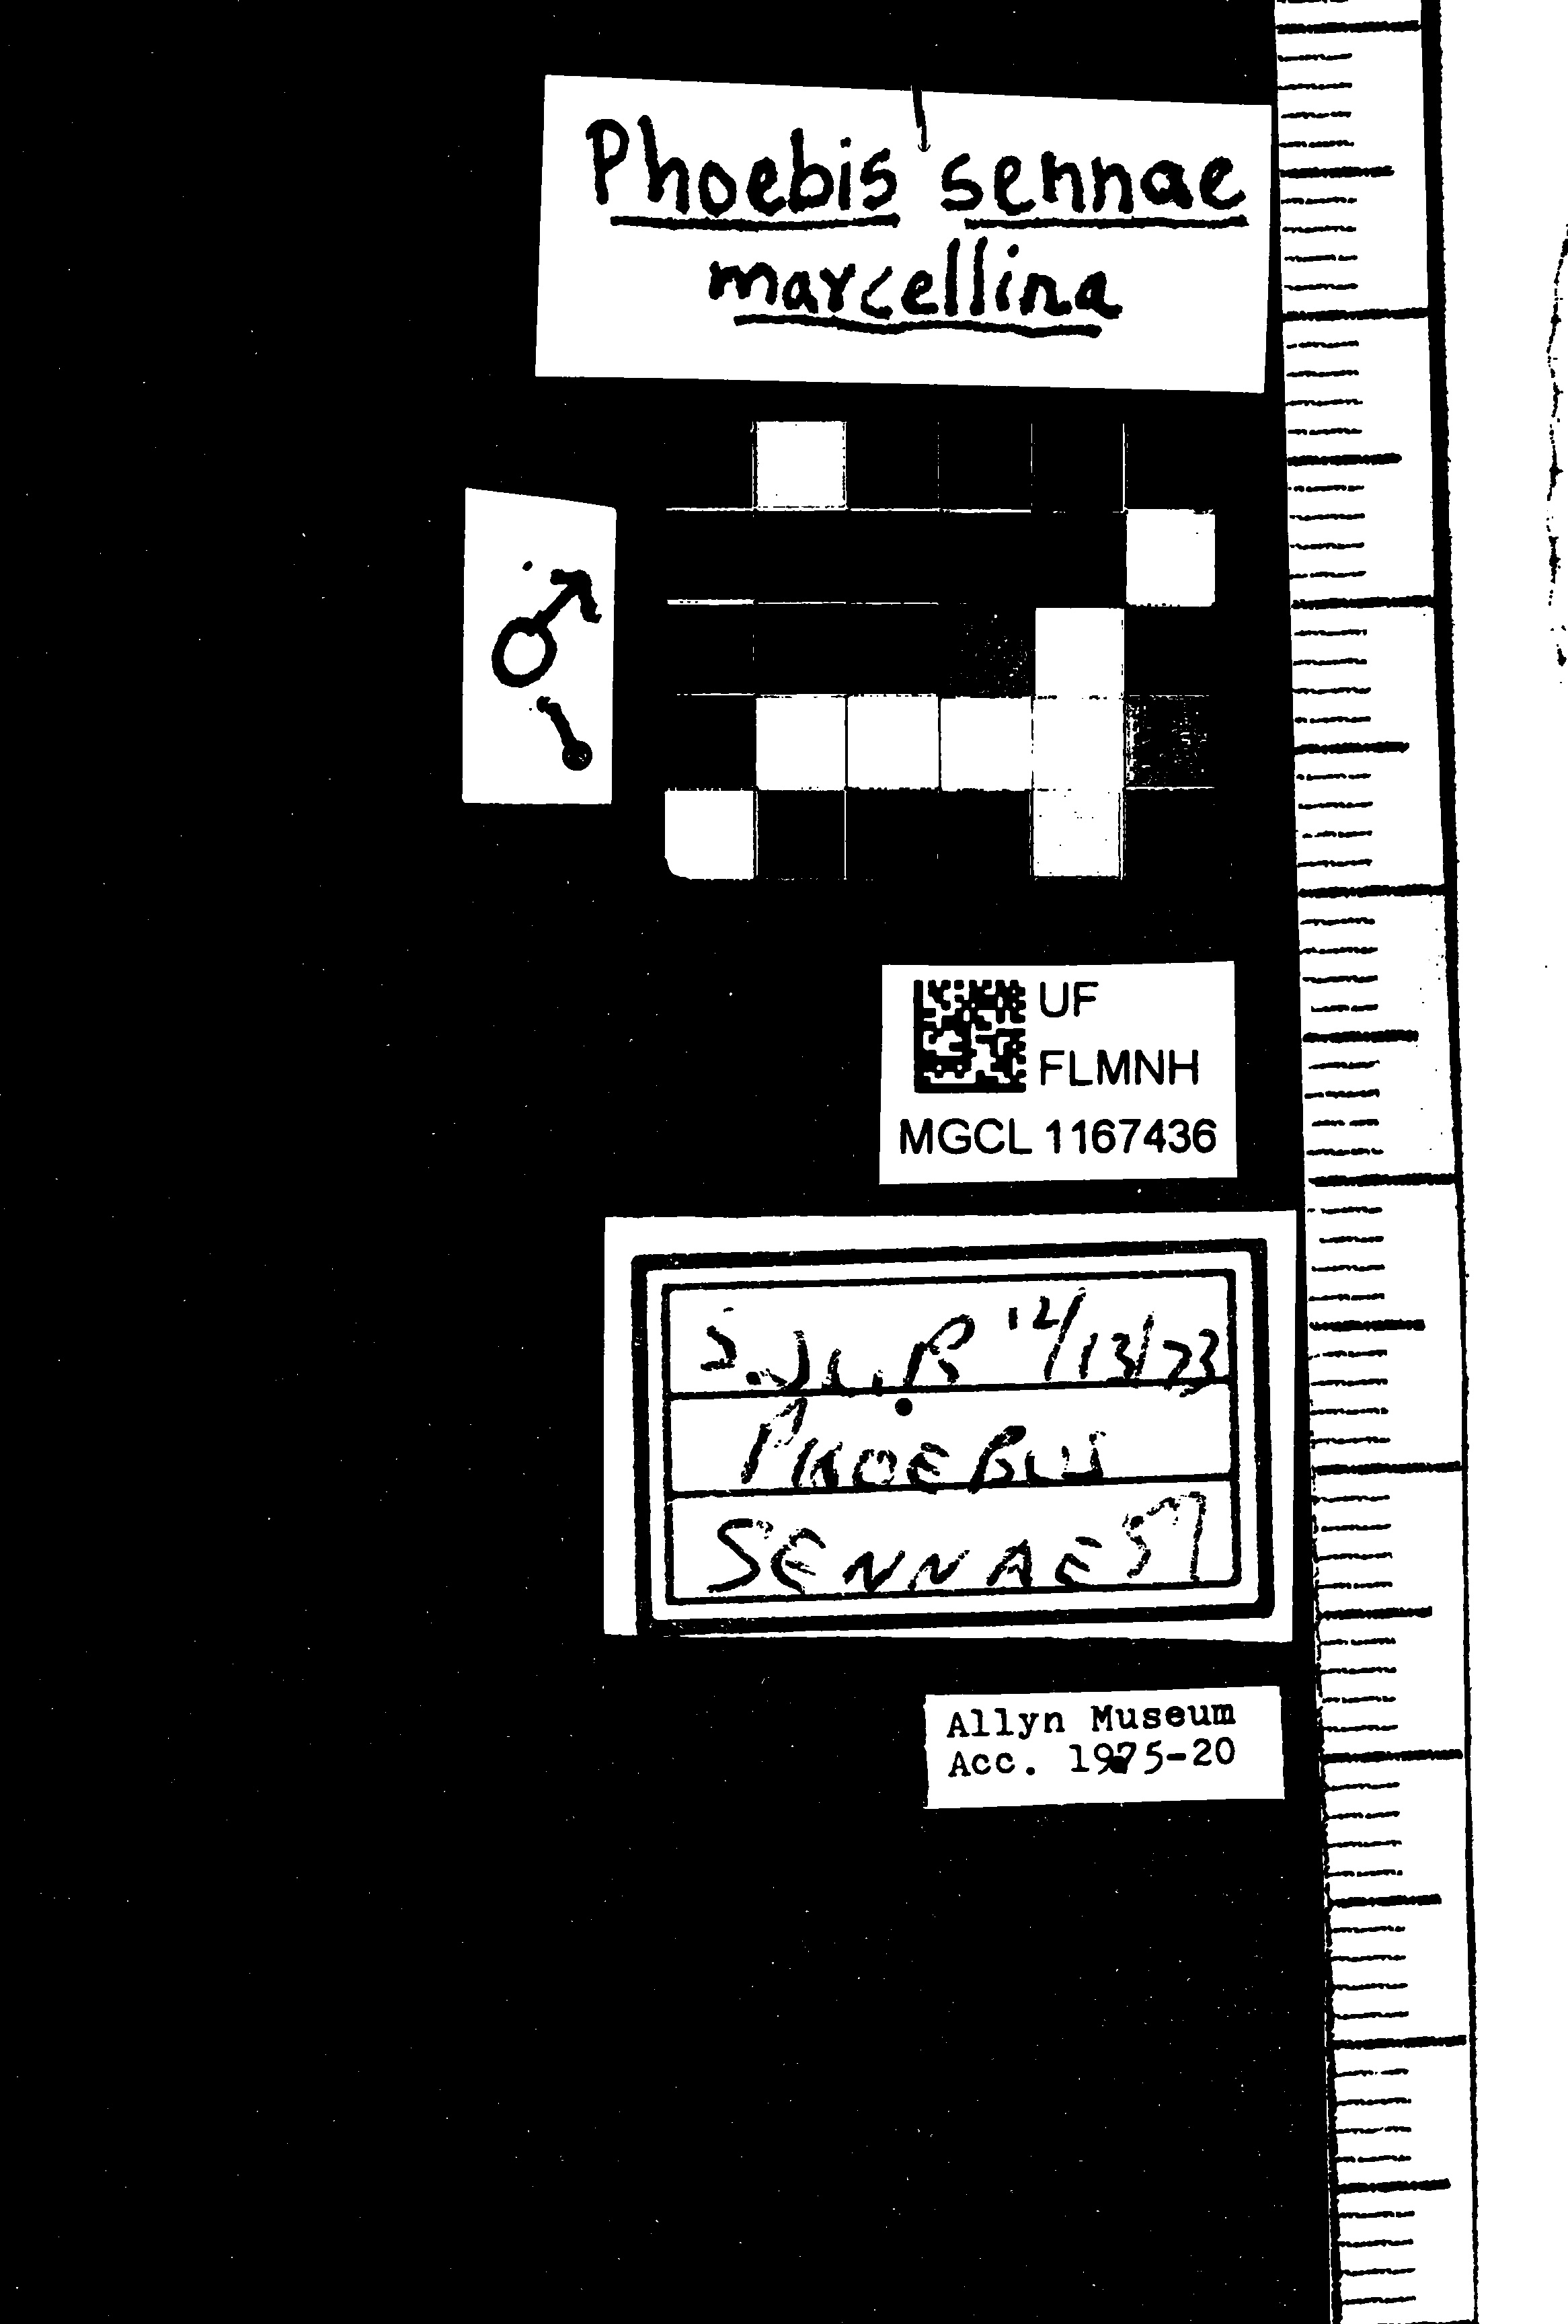 Phoebis sennae
marcellina
♂
UF
FLMNH
MGCL 1167436
12/13/73
PHOEBUS
SENNAE
Allyn Museum
Acc. 1975-20